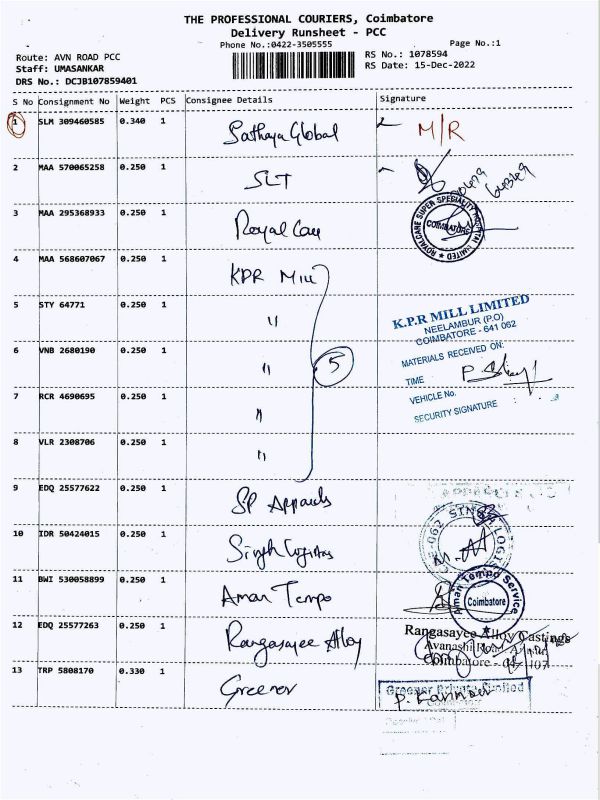 THE PROFESSIONAL COURIERS, Coimbatore
Delivery Runsheet - PCC
Phone No.:0422-3505555
Page No.:1
Route: AVN ROAD PCC
RS No.: 1078594
Staff: UMASANKAR
RS Date: 15-Dec-2022
DRS No.: DCJB107859401
S No Consignment No Weight PCS Consignee Details Signature
1 SLM 309460585 0.340 1 Sathaya Global M/R
2 MAA 570065258 0.250 1 SLT
3 MAA 295368933 0.250 1 Royal Care
ROYALCARE SUPER SPECIALITY HOSPITAL LIMITED
COIMBATORE
4 MAA 568607067 0.250 1 KPR Mill
5 STY 64771 0.250 1 "
6 VNB 2680190 0.250 1 "
5
7 RCR 4690695 0.250 1 "
8 VLR 2308706 0.250 1 "
K.P.R MILL LIMITED
NEELAMBUR (P.O)
COIMBATORE - 641 062
MATERIALS RECEIVED ON:
TIME
VEHICLE No. :
SECURITY SIGNATURE :
9 EDQ 25577622 0.250 1 SP Apparels
10 IDR 50424015 0.250 1 Singh Logistics
11 BWI 530058899 0.250 1 Aman Tempo
Aman Tempo Service
Coimbatore
12 EDQ 25577263 0.250 1 Rangasayee Alloy
Rangasayee Alloy Castings
Avanashi Road
Coimbatore
13 TRP 5808170 0.330 1 Greenor
Private Limited